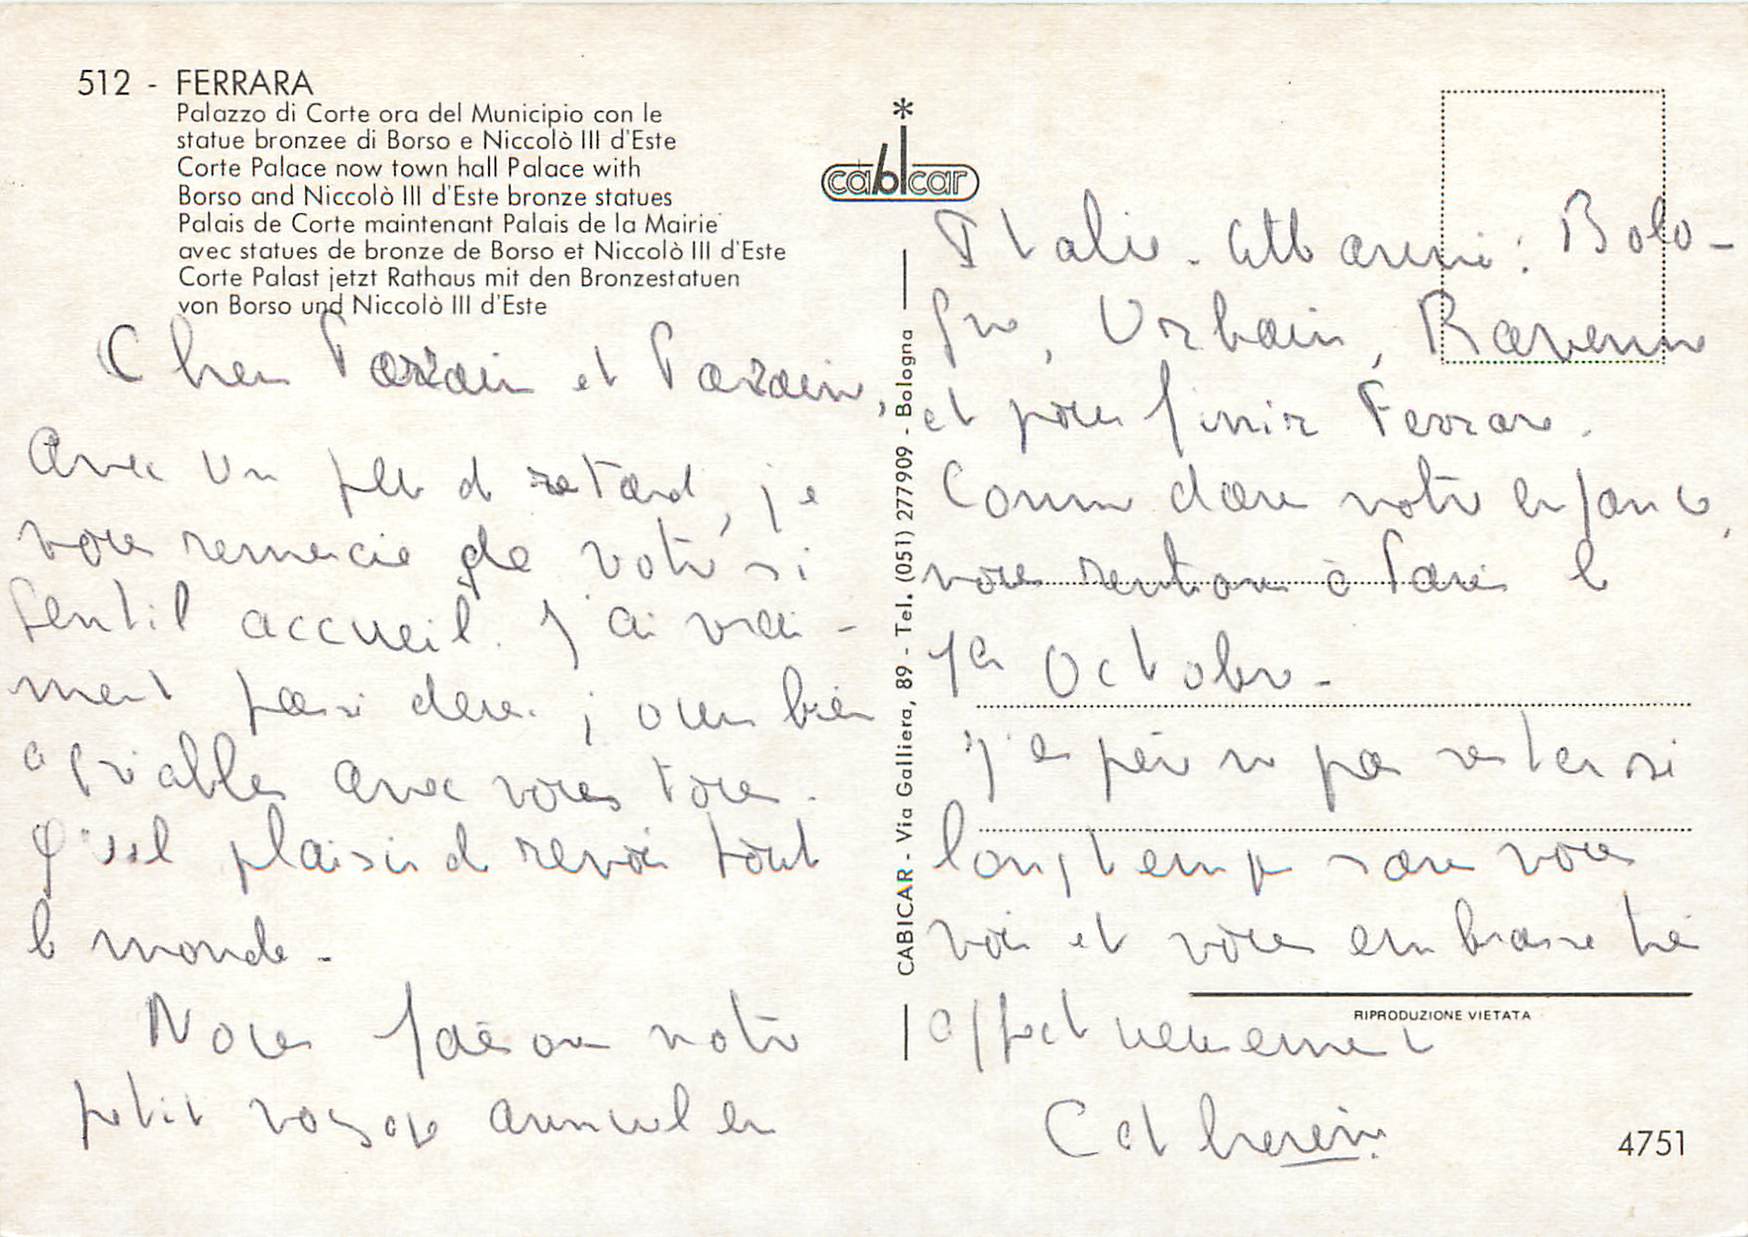 512 - FERRARA
Palazzo di Corte ora del Municipio con le
statue bronzee di Borso e Niccolò III d'Este
Corte Palace now town hall Palace with
Borso and Niccolò III d'Este bronze statues
Palais de Corte maintenant Palais de la Mairie
avec statues de bronze de Borso et Niccolò III d'Este
Corte Palast jetzt Rathaus mit den Bronzestatuen
von Borso und Niccolò III d'Este
Cher Parrain et Parain,
Avec un peu de retard, je
vous remercie de votre si
gentil accueil. J'ai vrai-
ment passé deux jours bien
agréables avec vous tous.
Quel plaisir de revoir tout
le monde.
Nous faisons notre
petit voyage annuel en
*
cabicar
CABICAR - Via Galliera, 89 - Tel. (051) 277909 - Bologna
Italie. Bolo-
gne, Urbain, Ravenne
et pour finir Ferrare.
Comme dans notre enfance,
nous rentrons à Paris le
1er Octobre.
J'espère ne pas rester si
longtemps sans vous
voir et vous embrasse très
affectueusement
Catherine
RIPRODUZIONE VIETATA
4751